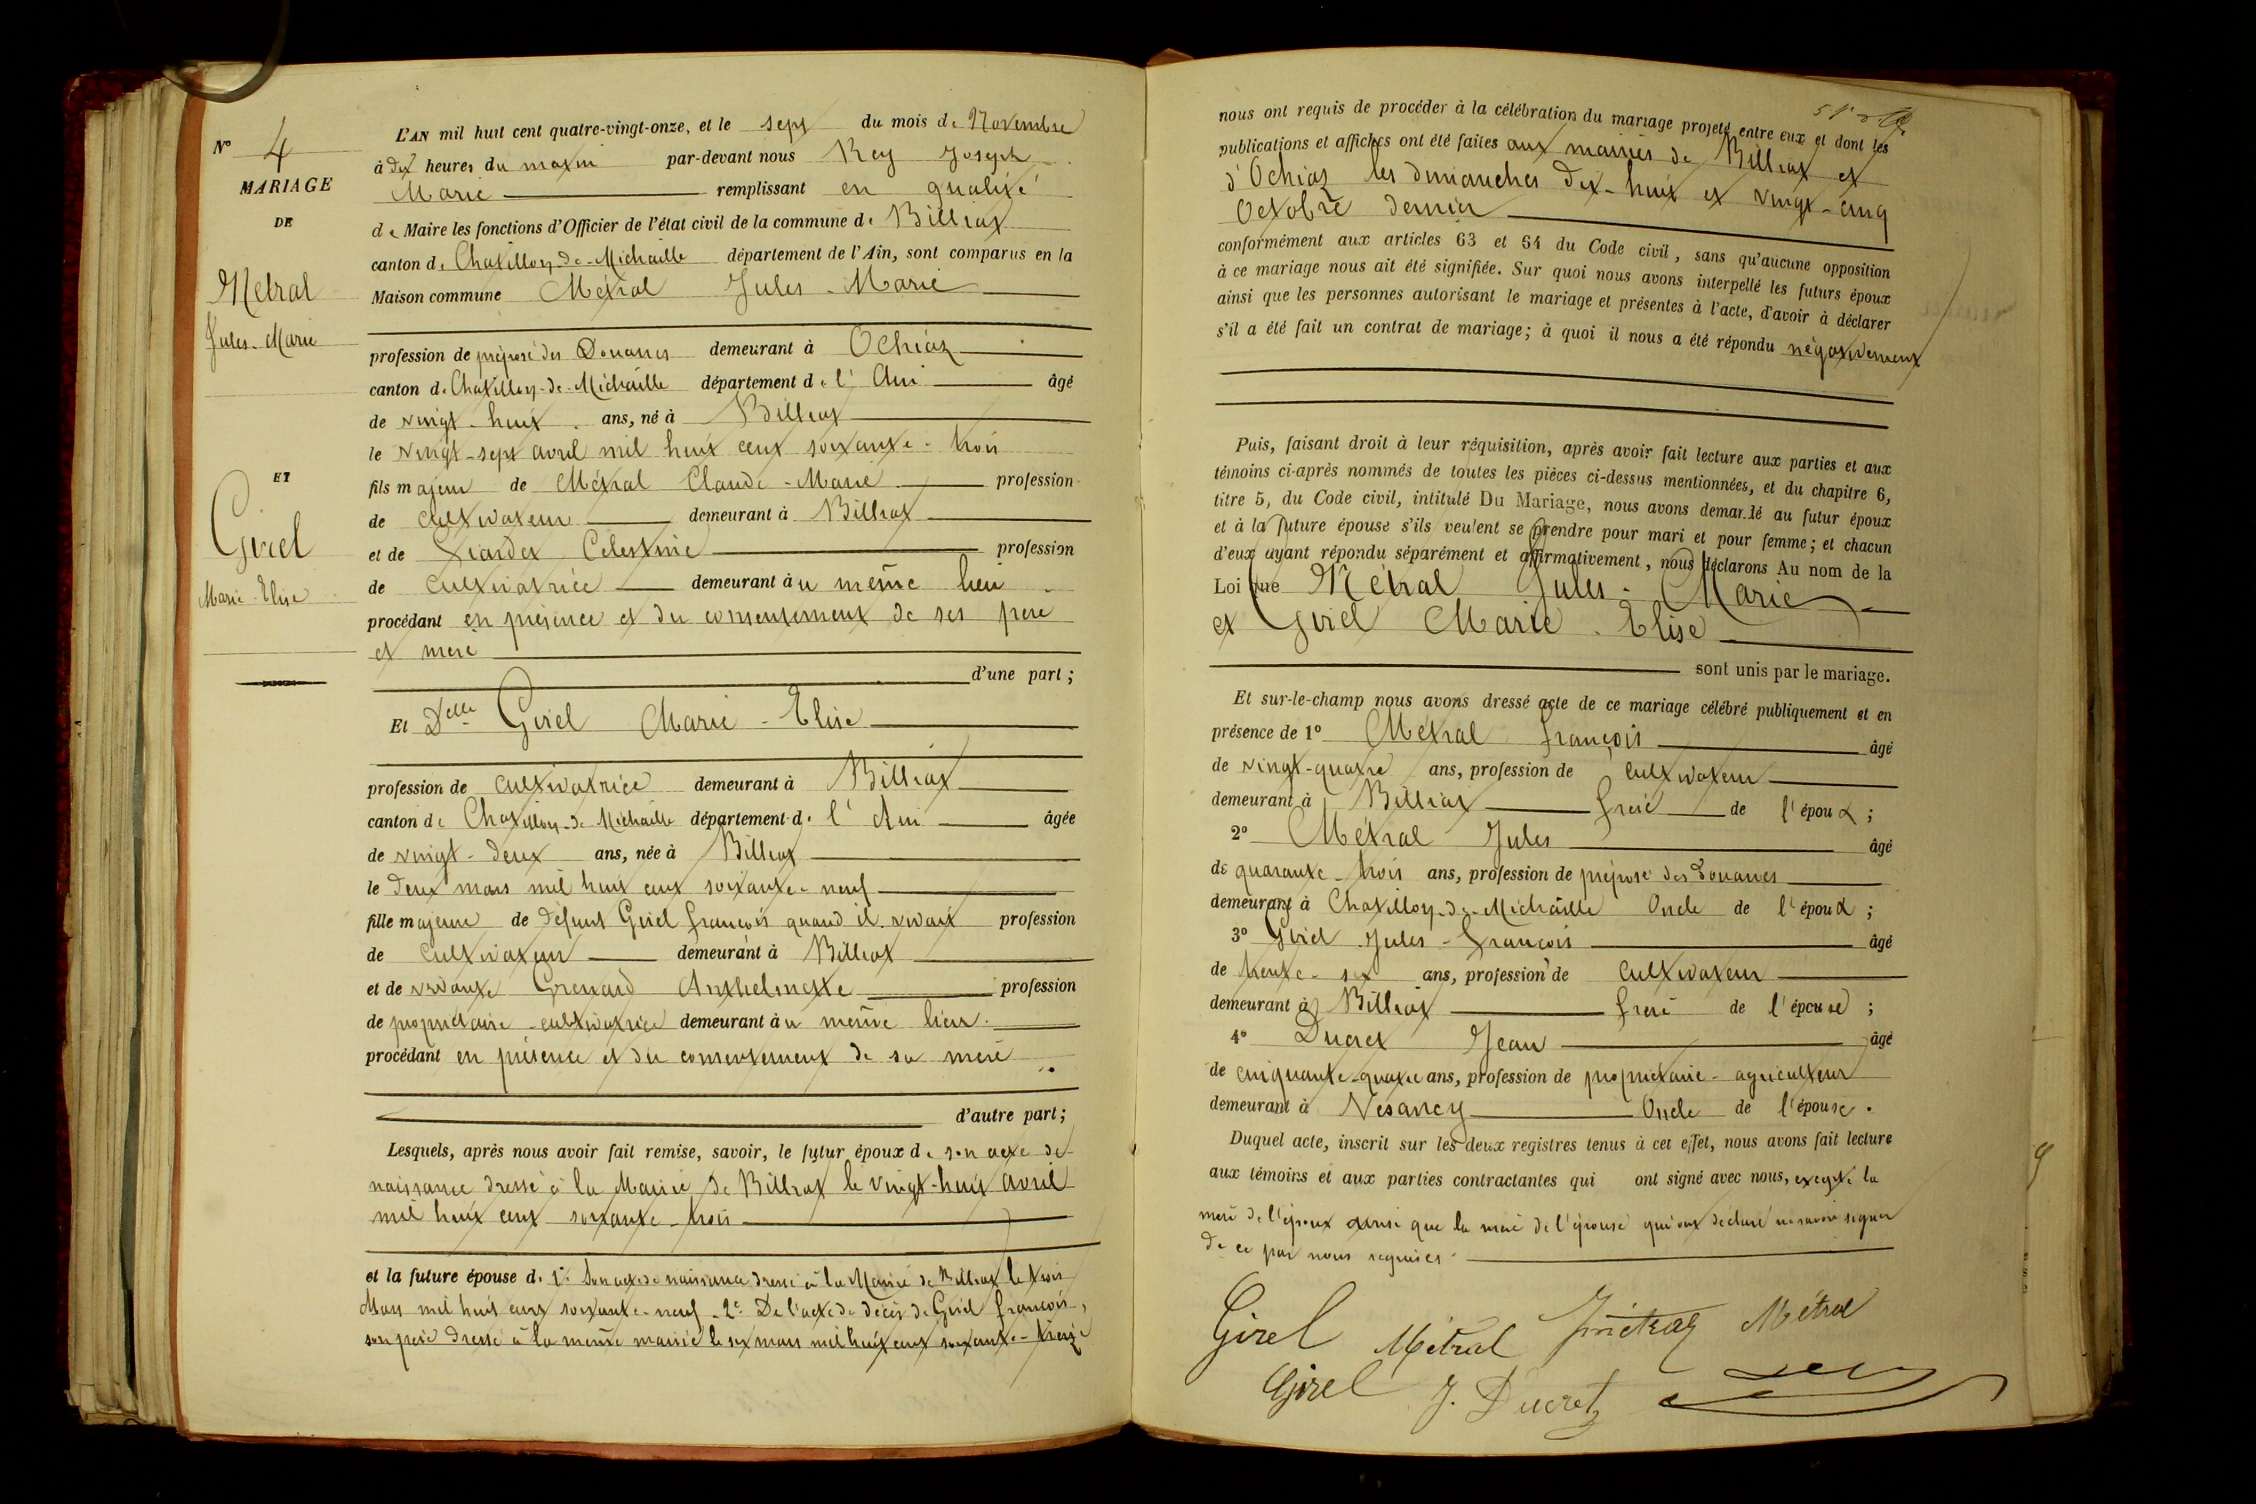 L'AN mil huit cent quatre-vingt-onze, et le sept du mois de Novembre
N° 4
à dix heures du matin par-devant nous Rey Joseph
MARIAGE
Marie remplissant en qualité
DE
de Maire les fonctions d'Officier de l'état civil de la commune de Billiat
canton de Chatillon-de-Michaille département de l'Ain, sont comparus en la
Métral
Maison commune Métral Jules-Marie
Jules-Marie
profession de préposé des Douanes demeurant à Ochiaz
canton de Chatillon-de-Michaille département de l'Ain âgé
de vingt-huit ans, né à Billiat
le vingt-sept avril mil huit cent soixante-trois
ET
fils majeur de Métral Claude-Marie profession
de cultivateur demeurant à Billiat
Girel
et de Célestine profession
de cultivatrice demeurant àu même lieu
Marie-Elise
procédant en présence et du consentement de ses père
et mère
d'une part;
Et Delle Girel Marie-Elise
profession de cultivatrice demeurant à Billiat
canton de Chatillon-de-Michaille département de l'Ain âgée
de vingt-deux ans, née à Billiat
le deux mars mil huit cent soixante-neuf
fille majeure de défunt Girel François quand il vivait profession
de cultivateur demeurant à Billiat
et de vivante Grenard Anthelmette profession
de propriétaire-cultivatrice demeurant àu même lieu
procédant en présence et du consentement de sa mère
d'autre part;
Lesquels, après nous avoir fait remise, savoir, le futur époux de son acte de
naissance dressé à la Mairie de Billiat le vingt-huit avril
mil huit cent soixante-trois
et la future épouse de 1° Son acte de naissance dressé à la Mairie de Billiat le trois
Mars mil huit cent soixante-neuf. 2° De l'acte de décès de Girel François,
son père dressé à la même mairie le six mars mil huit cent soixante-treize
nous ont requis de procéder à la célébration du mariage projeté entre eux et dont les
publications et affiches ont été faites aux mairies de Billiat et
d'Ochiaz les dimanches dix-huit et vingt-cinq
Octobre dernier
conformément aux articles 63 et 64 du Code civil, sans qu'aucune opposition
à ce mariage nous ait été signifiée. Sur quoi nous avons interpellé les futurs époux
ainsi que les personnes autorisant le mariage et présentes à l'acte, d'avoir à déclarer
s'il a été fait un contrat de mariage; à quoi il nous a été répondu négativement
Puis, faisant droit à leur réquisition, après avoir fait lecture aux parties et aux
témoins ci-après nommés de toutes les pièces ci-dessus mentionnées, et du chapitre 6,
titre 5, du Code civil, intitulé Du Mariage, nous avons demandé au futur époux
et à la future épouse s'ils veulent se prendre pour mari et pour femme; et chacun
d'eux ayant répondu séparément et affirmativement, nous déclarons Au nom de la
Loi que Métral Jules-Marie
et Girel Marie-Elise
sont unis par le mariage.
Et sur-le-champ nous avons dressé acte de ce mariage célébré publiquement et en
présence de 1° Métral François âgé
de vingt-quatre ans, profession de cultivateur
demeurant à Billiat frère de l'époux;
2° Métral Jules âgé
de quarante-trois ans, profession de préposé des Douanes
demeurant à Chatillon-de-Michaille Oncle de l'époux;
3° Girel Jules-François âgé
de trente-six ans, profession de cultivateur
demeurant à Billiat frère de l'épouse;
4° Ducret Jean âgé
de cinquante-quatre ans, profession de propriétaire-agriculteur
demeurant à Vésancy Oncle de l'épouse.
Duquel acte, inscrit sur les deux registres tenus à cet effet, nous avons fait lecture
aux témoins et aux parties contractantes qui ont signé avec nous, excepté la
mère de l'époux ainsi que la mère de l'épouse qui ont déclaré ne savoir signer
de ce par nous requises
Girel Métral Métral Métral
Girel J. Ducret